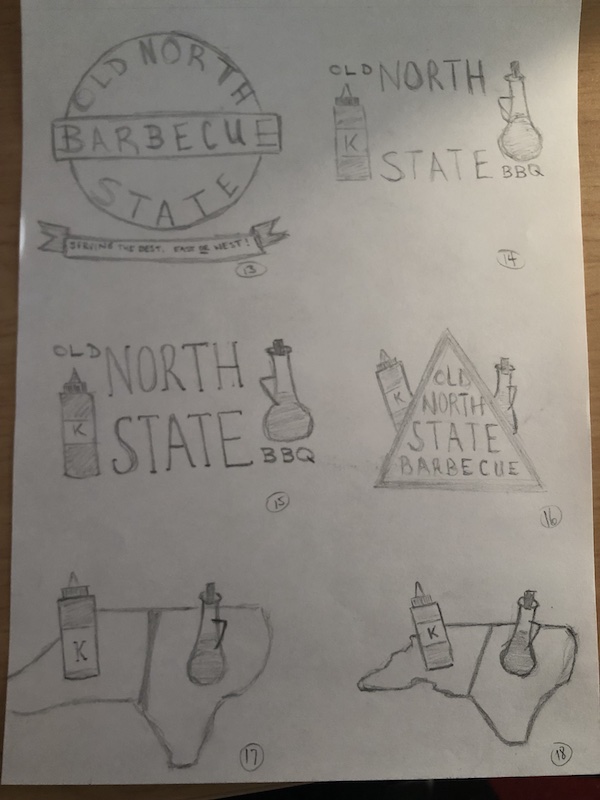 OLD NORTH
BARBECUE
STATE
SERVING THE BEST, EAST OR WEST!
13
OLD NORTH
K
STATE BBQ
14
OLD NORTH
K
STATE
BBQ
15
OLD
K
NORTH
STATE
BARBECUE
16
K
17
K
18